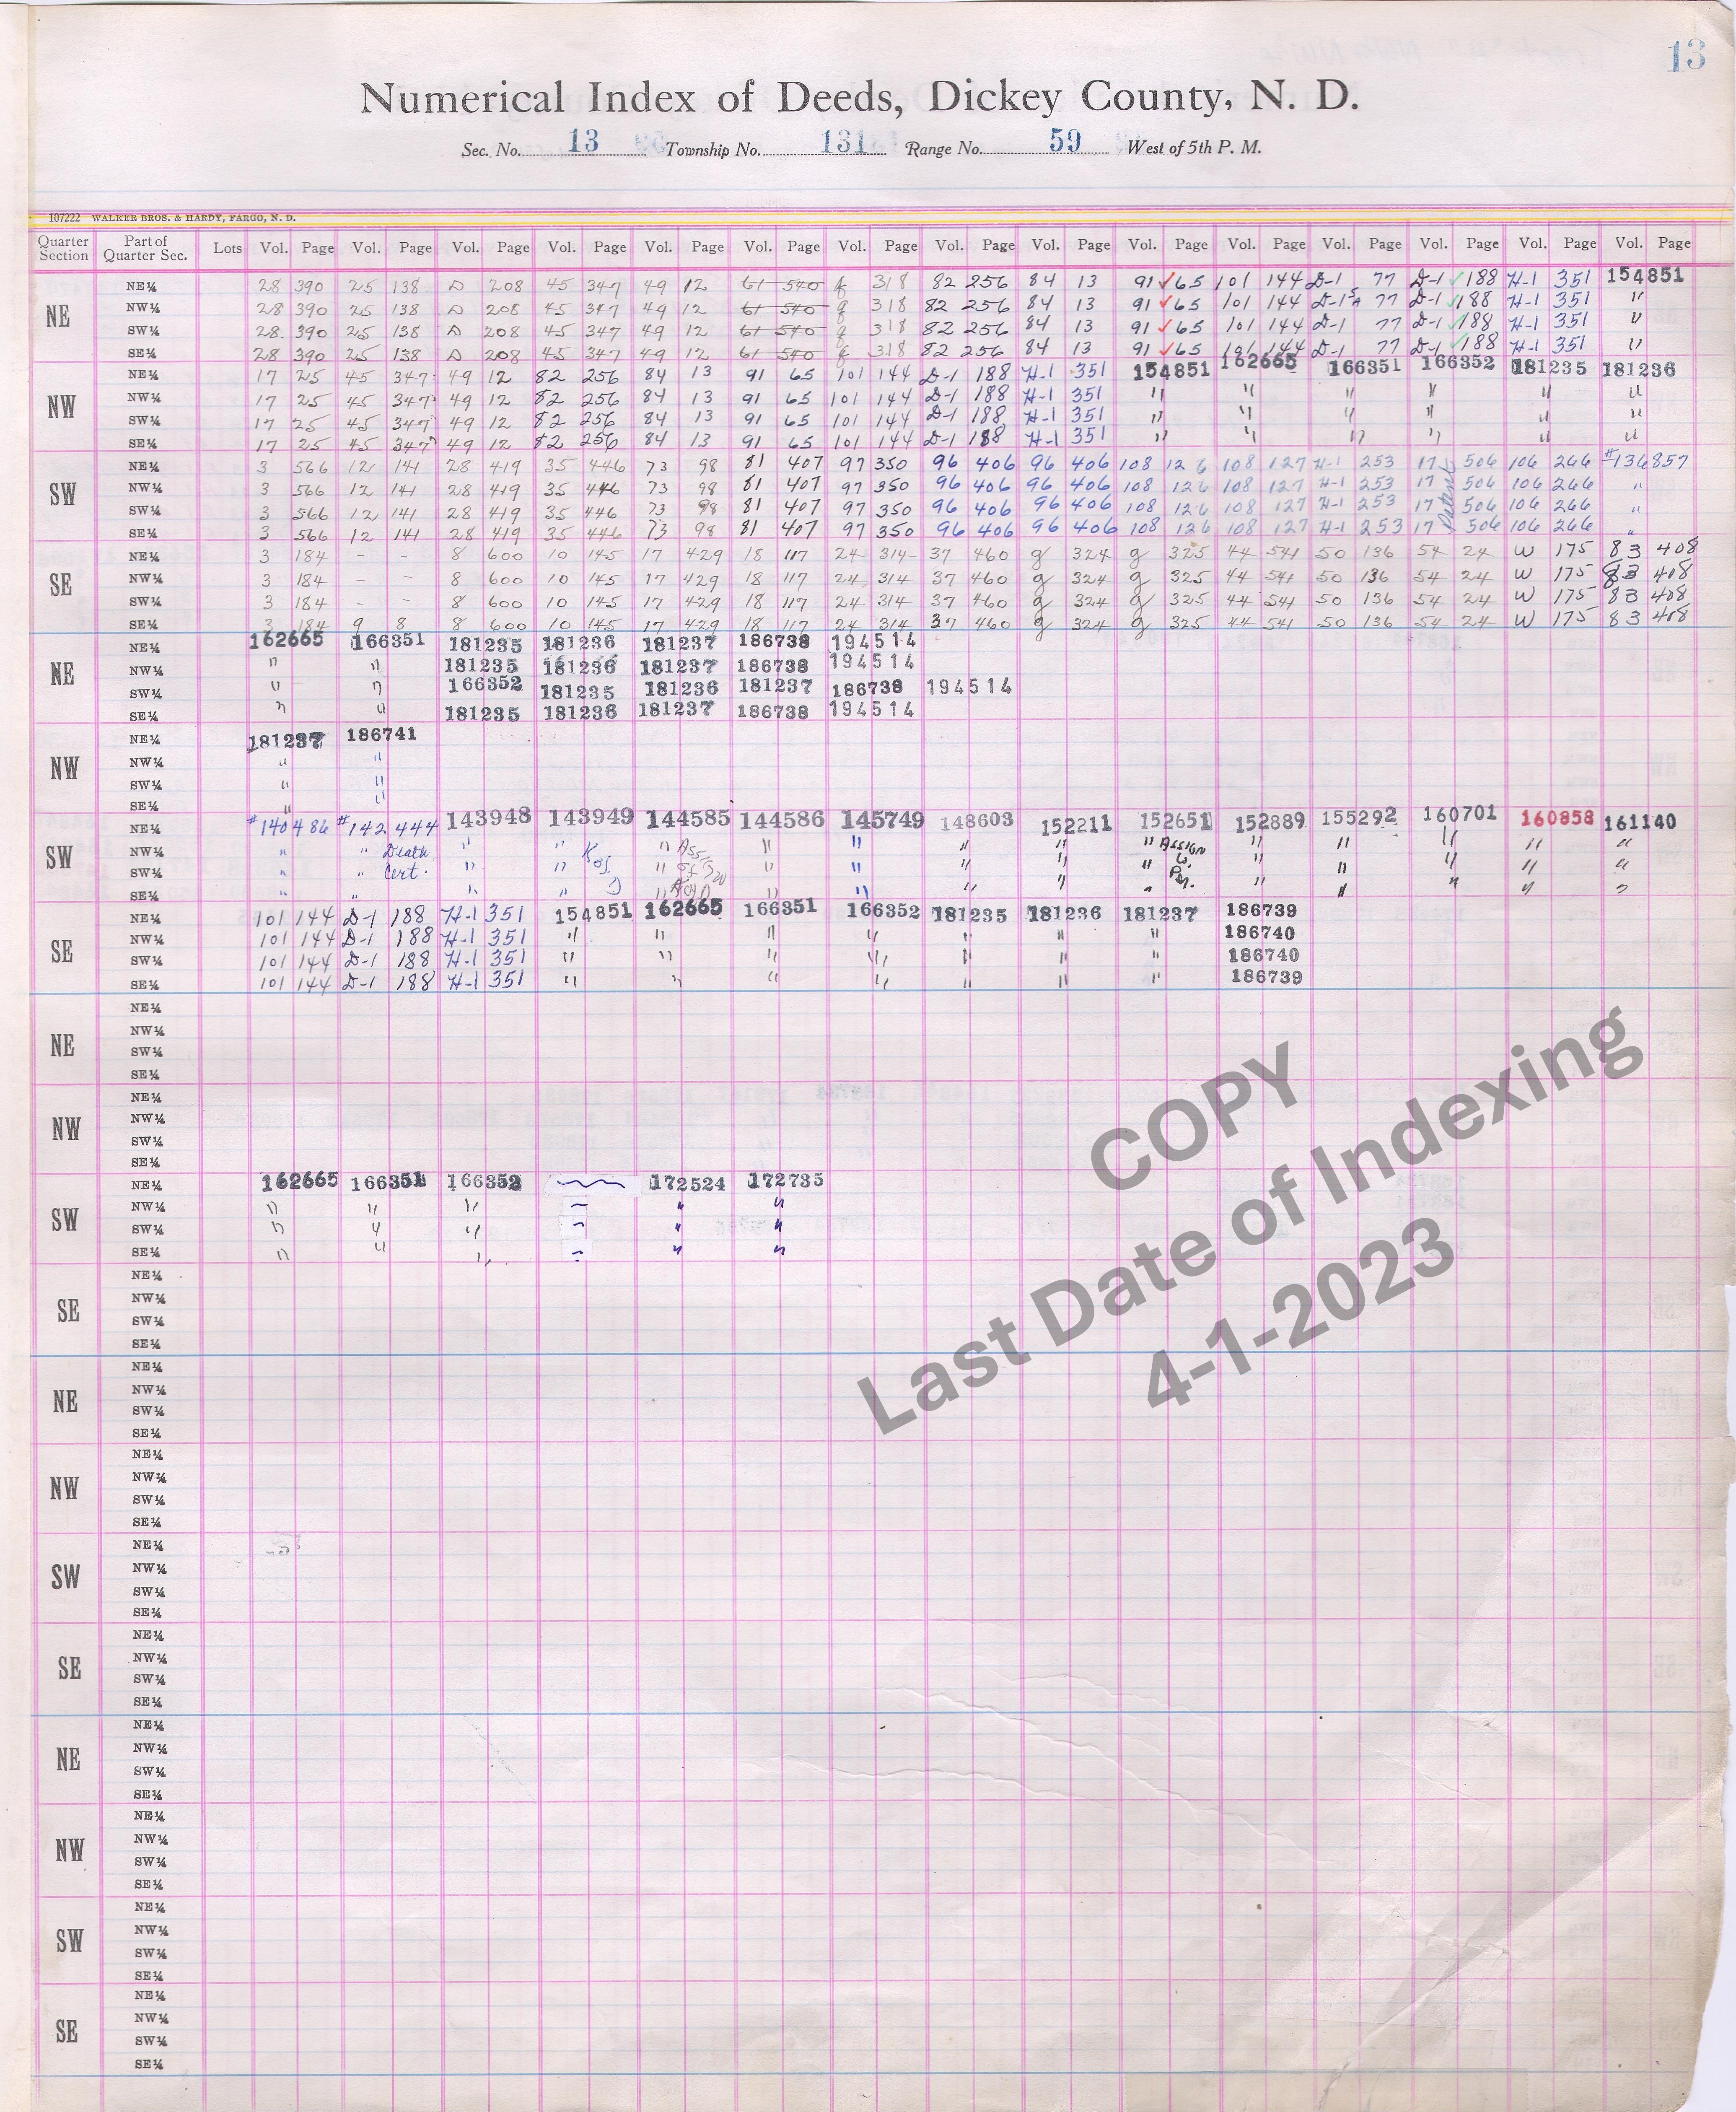 13
Numerical Index of Deeds, Dickey County, N. D.
Sec. No. 13 Township No. 131 Range No. 59 West of 5th P. M.
107222 WALKER BROS. & HARDY, FARGO, N. D.
Quarter Section Part of Quarter Sec. Lots Vol. Page Vol. Page Vol. Page Vol. Page Vol. Page Vol. Page Vol. Page Vol. Page Vol. Page Vol. Page Vol. Page Vol. Page Vol. Page Vol. Page Vol. Page
NE
NE¼ 28 390 25 138 D 208 45 347 49 12 61 540 318 82 256 84 13 91 65 101 144 D-1 77 D-1 188 H-1 351 154851
NW¼ 28 390 25 138 D 208 45 347 49 12 61 540 318 82 256 84 13 91 65 101 144 D-1 77 D-1 188 H-1 351 "
SW¼ 28 390 25 138 D 208 45 347 49 12 61 540 318 82 256 84 13 91 65 101 144 D-1 77 D-1 188 H-1 351 "
SE¼ 28 390 25 138 D 208 45 347 49 12 61 540 318 82 256 84 13 91 65 101 144 D-1 77 D-1 188 H-1 351 "
NW
NE¼ 17 25 45 347 49 12 82 256 84 13 91 65 101 144 D-1 188 H-1 351 154851 162665 166351 166352 181235 181236
NW¼ 17 25 45 347 49 12 82 256 84 13 91 65 101 144 D-1 188 H-1 351 " " " " " "
SW¼ 17 25 45 347 49 12 82 256 84 13 91 65 101 144 D-1 188 H-1 351 " " " " " "
SE¼ 17 25 45 347 49 12 82 256 84 13 91 65 101 144 D-1 188 H-1 351 " " " " " "
SW
NE¼ 3 566 12 141 28 419 35 446 73 98 81 407 97 350 96 406 96 406 108 126 108 127 H-1 253 17 506 106 266 #136857
NW¼ 3 566 12 141 28 419 35 446 73 98 81 407 97 350 96 406 96 406 108 126 108 127 H-1 253 17 506 106 266 "
SW¼ 3 566 12 141 28 419 35 446 73 98 81 407 97 350 96 406 96 406 108 126 108 127 H-1 253 17 506 106 266 "
SE¼ 3 566 12 141 28 419 35 446 73 98 81 407 97 350 96 406 96 406 108 126 108 127 H-1 253 17 506 106 266 "
Patent
SE
NE¼ 3 184 - - 8 600 10 145 17 429 18 117 24 314 37 460 g 324 g 325 44 541 50 136 54 24 W 175 83 408
NW¼ 3 184 - - 8 600 10 145 17 429 18 117 24 314 37 460 g 324 g 325 44 541 50 136 54 24 W 175 83 408
SW¼ 3 184 - - 8 600 10 145 17 429 18 117 24 314 37 460 g 324 g 325 44 541 50 136 54 24 W 175 83 408
SE¼ 3 184 9 8 8 600 10 145 17 429 18 117 24 314 37 460 g 324 g 325 44 541 50 136 54 24 W 175 83 408
NE
NE¼ 162665 166351 181235 181236 181237 186738 194514
NW¼ " " 181235 181236 181237 186738 194514
SW¼ " " 166352 181235 181236 181237 186738 194514
SE¼ " " 181235 181236 181237 186738 194514
NW
NE¼ 181237 186741
NW¼ " "
SW¼ " "
SE¼ " "
SW
NE¼ #140486 #142444 143948 143949 144585 144586 145749 148603 152211 152651 152889 155292 160701 160858 161140
NW¼ " " Death " " " " " " " " Assign " " " " "
SW¼ " " Cert. " " " " " " " " " " " " "
SE¼ " " " " " " " " " " Per. " " " " "
SE
NE¼ 101 144 D-1 188 H-1 351 154851 162665 166351 166352 181235 181236 181237 186739
NW¼ 101 144 D-1 188 H-1 351 " " " " " " " 186740
SW¼ 101 144 D-1 188 H-1 351 " " " " " " " 186740
SE¼ 101 144 D-1 188 H-1 351 " " " " " " " 186739
NE
NE¼
NW¼
SW¼
SE¼
NW
NE¼
NW¼
SW¼
SE¼
SW
NE¼ 162665 166351 166352 172524 172735
NW¼ " " " " "
SW¼ " " " " "
SE¼ " " " " "
SE
NE¼
NW¼
SW¼
SE¼
NE
NE¼
NW¼
SW¼
SE¼
NW
NE¼
NW¼
SW¼
SE¼
SW
NE¼
NW¼
SW¼
SE¼
SE
NE¼
NW¼
SW¼
SE¼
NE
NE¼
NW¼
SW¼
SE¼
NW
NE¼
NW¼
SW¼
SE¼
SW
NE¼
NW¼
SW¼
SE¼
SE
NE¼
NW¼
SW¼
SE¼
COPY
Last Date of Indexing
4-1-2023